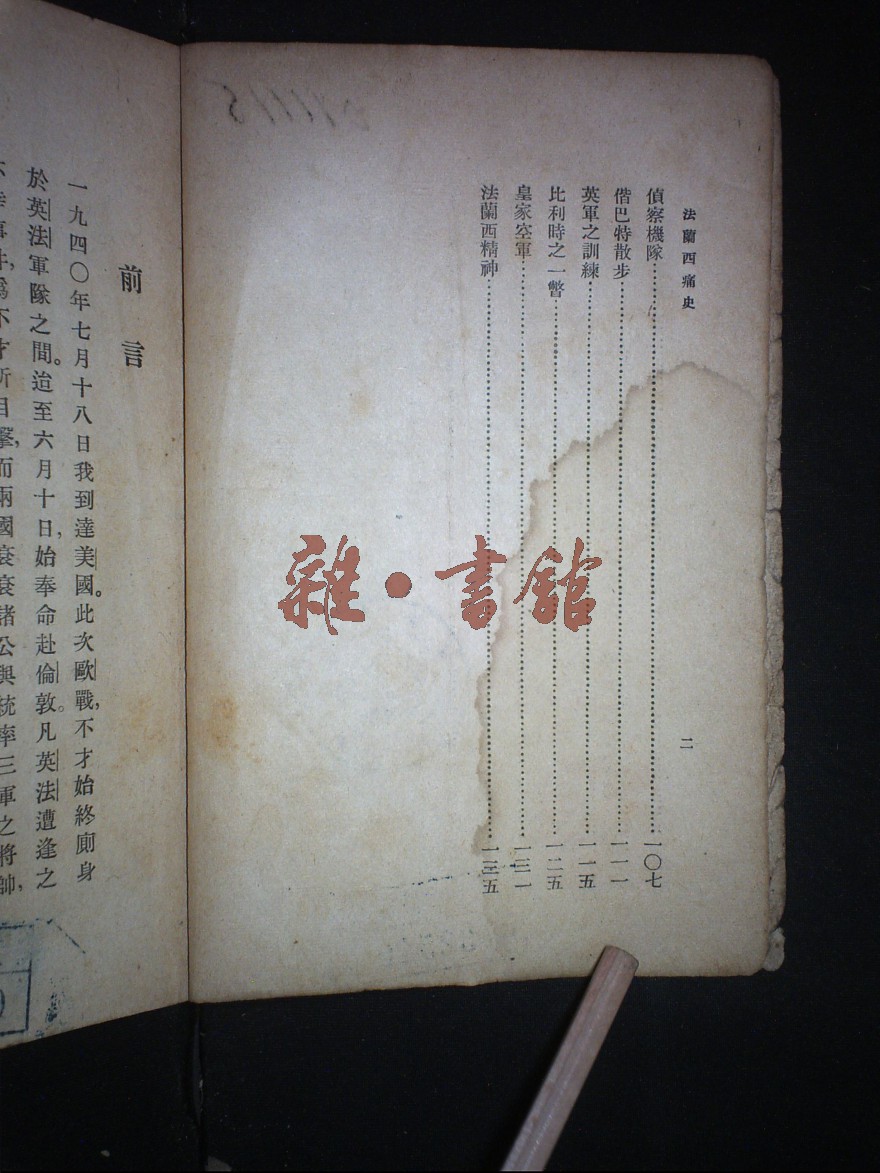 法蘭西痛史
二
偵察機隊 一〇七
偕巴特散步 一一一
英軍之訓練 一一五
比利時之一瞥 一二五
皇家空軍 一三一
法蘭西精神 一三五
前言
一九四〇年七月十八日我到達美國。此次歐戰,不才始終廁身
於英法軍隊之間。迨至六月十日,始奉命赴倫敦。凡英法遭逢之
爲不才所目擊,而兩國袞袞諸公與統率三軍之將帥,
雜·書館